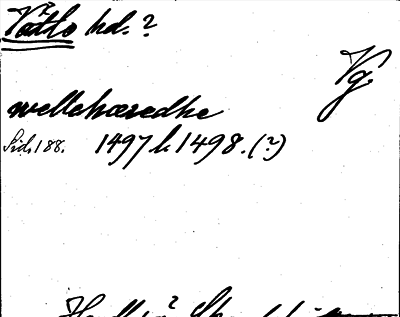 Vätlo hd. ?
Vg.
wellehæredhe
Sid. 188. 1497 l. 1498. (?)